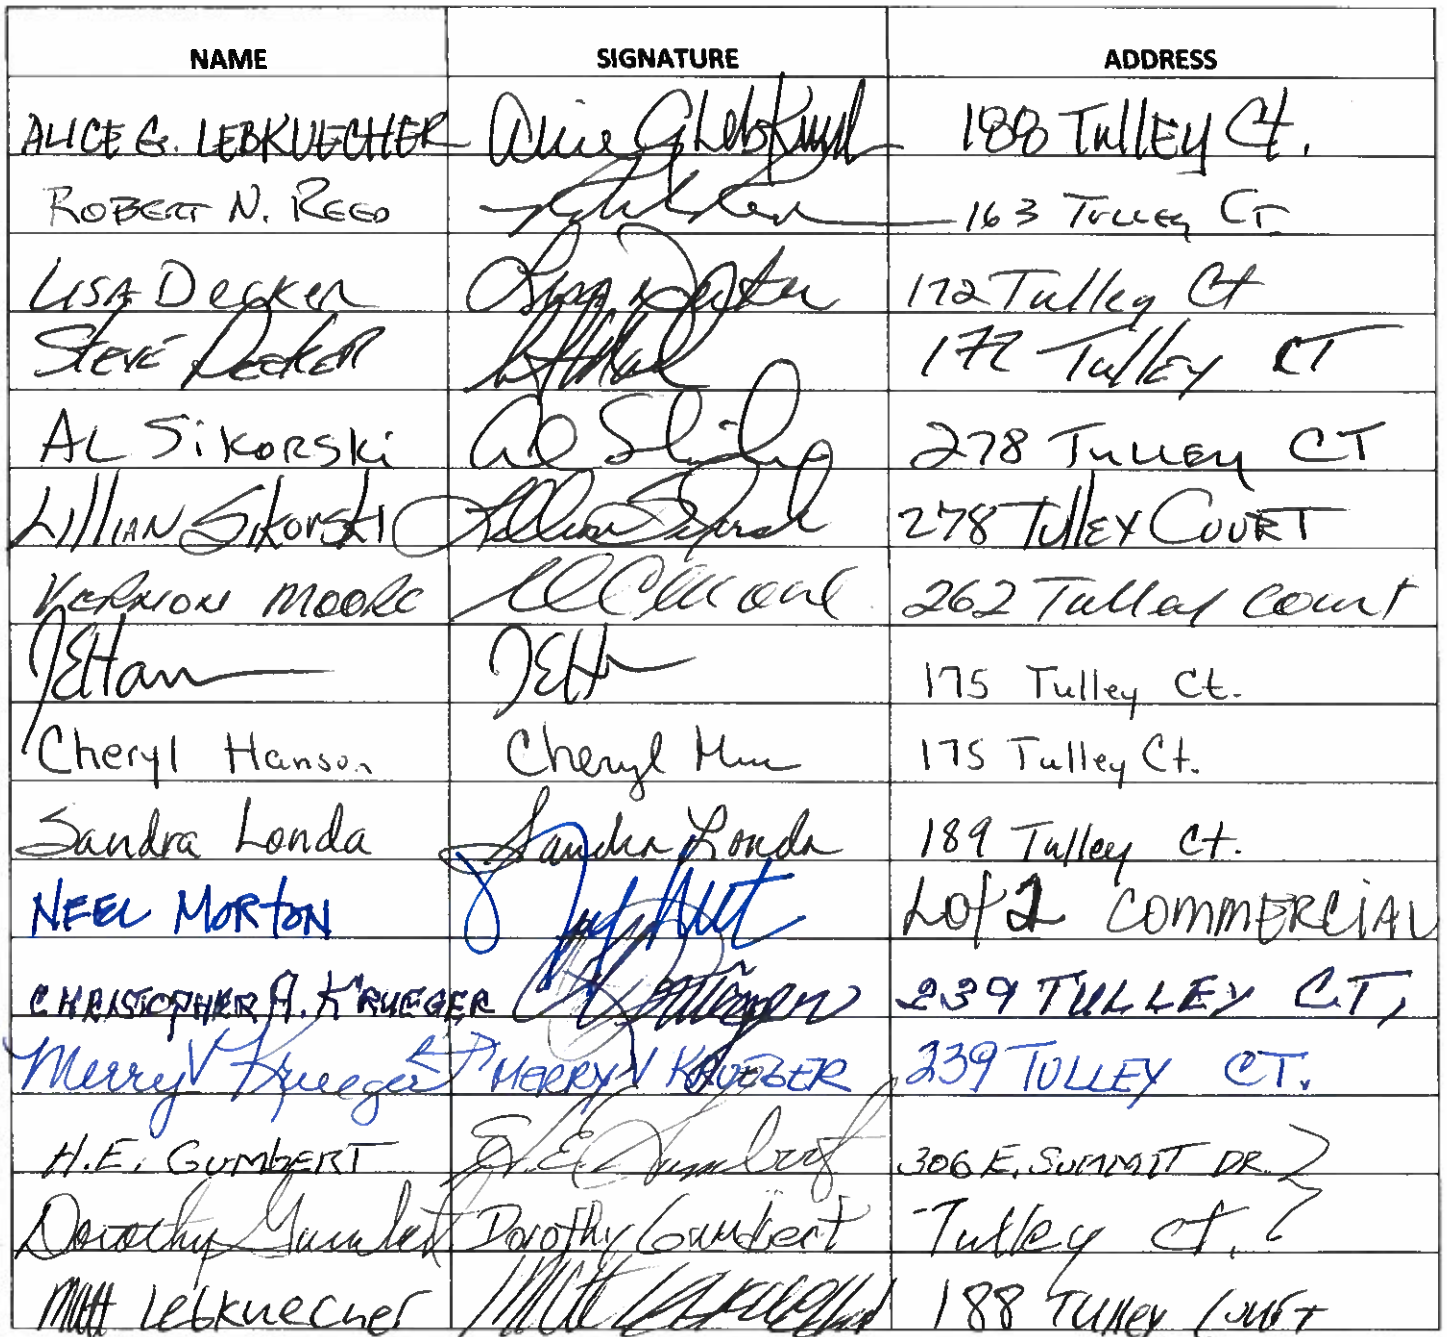 NAME SIGNATURE ADDRESS
ALICE G. LEBKUECHER Alice G Lebkuech 188 Tulley Ct.
ROBERT N. REED 163 Tulley CT
LISA Decker Lisa Decker 172 Tulley Ct
STEVE DECKER 172 Tulley CT
AL Sikorski Al 278 Tulley CT
Lillian Sikorski Lillian 278 Tulley COURT
VERNON MOORE 262 Tulley Court
JEHan JEH 175 Tulley Ct.
Cheryl Hanson Cheryl 175 Tulley Ct.
Sandra Londa Sandra Londa 189 Tulley Ct.
NEEL MORTON Lot 2 COMMERCIAL
CHRISTOPHER A. KRUEGER 239 TULLEY CT,
Merry V Krueger MERRY V KRUEGER 239 TULLEY CT.
H.E. GUMBERT H.E. Gumbert 306 E. SUMMIT DR.
Dorothy Gumbert Dorothy Gumbert Tulley ct. ?
Matt Lebkuecher Matt 188 Tulley Court